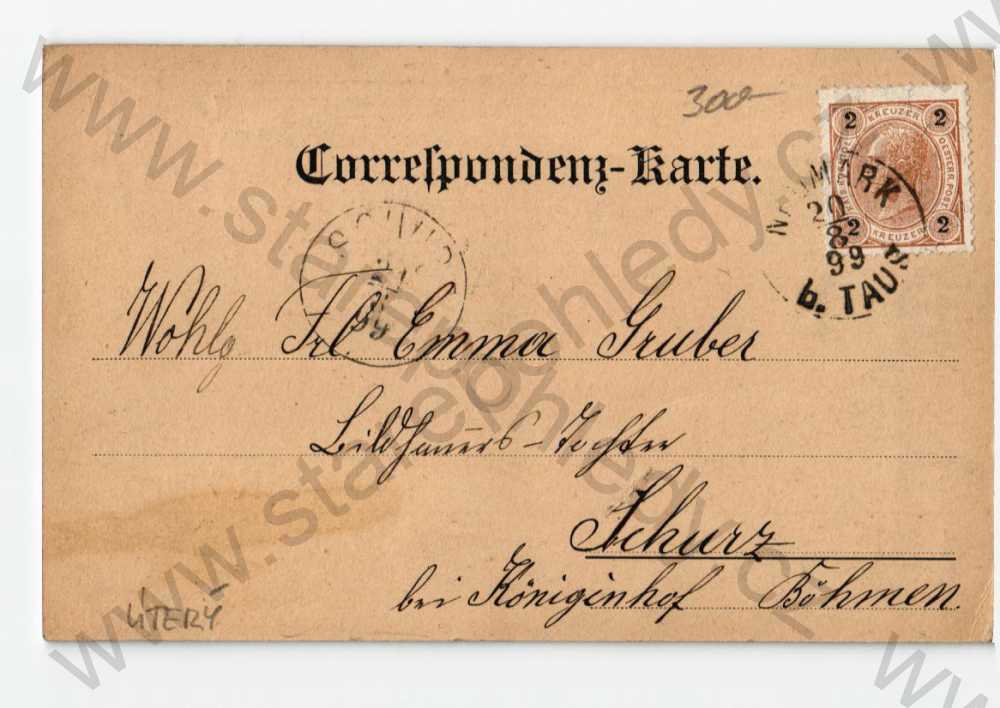 300-
Correspondenz-Karte.
2 KREUZER 2
2 KREUZER 2
OESTERR. POST
20
8
99
b. TAUS
99
Wohlg Frl. Emma Gruber
Bildhauers-Tochter
Schurz
bei Königinhof Böhmen.
ÚTERÝ
www.starepohledy.cz
www.starepohledy.cz